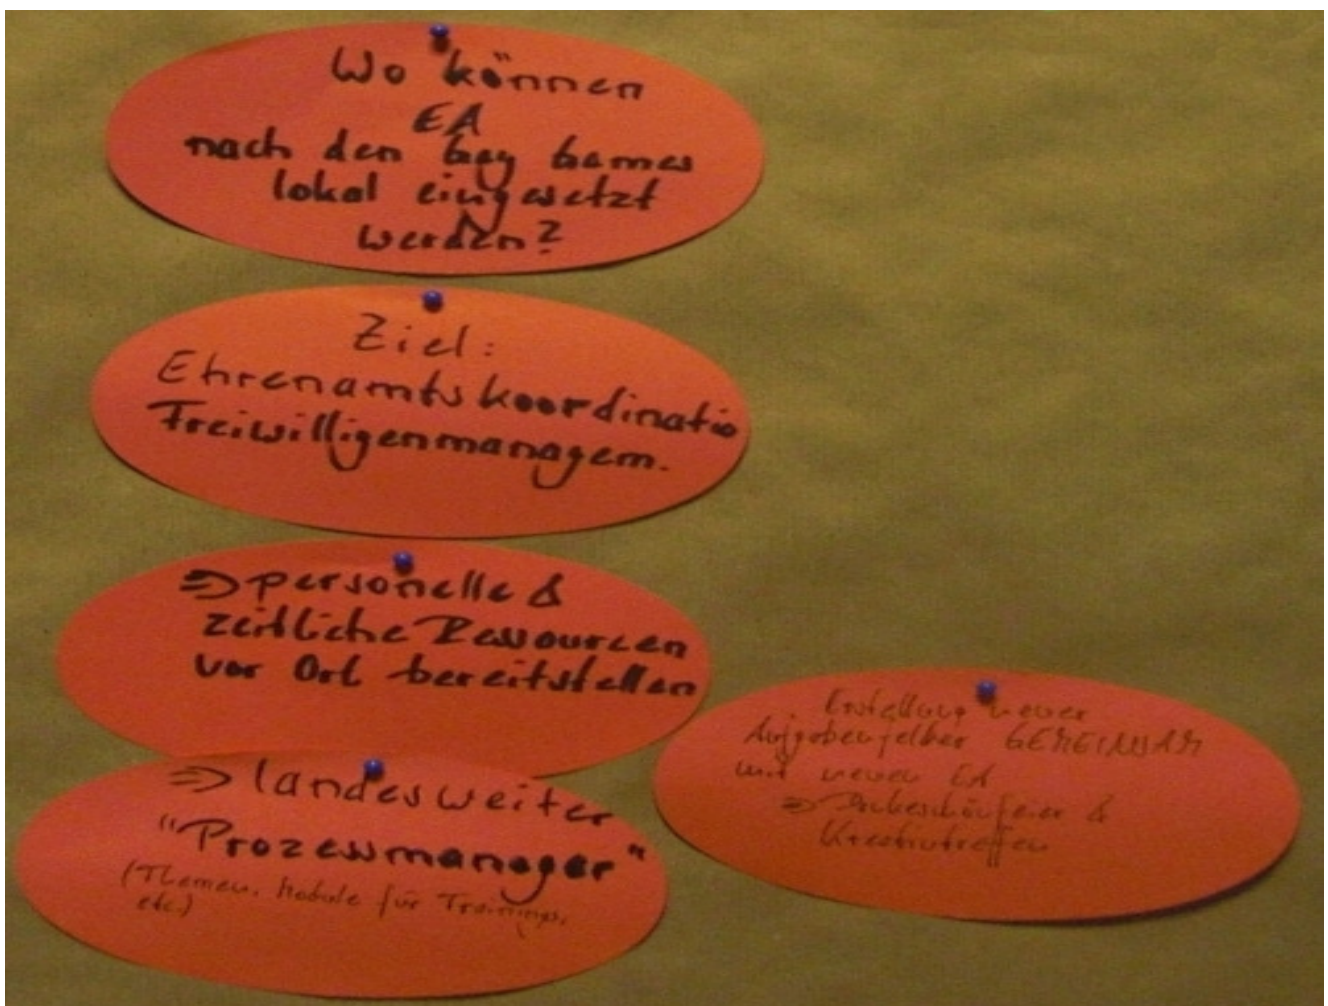 Wo können
EA
nach den bay games
lokal eingesetzt
werden?
Ziel:
Ehrenamtskoordinatio
Freiwilligenmanagem.
⇒ personelle &
zeitliche Ressourcen
vor Ort bereitstellen
⇒ landesweiter
"Prozessmanager"
(Themen, Module für Trainings,
etc.)
Erstellung neuer
Aufgabenfelder GEMEINSAM
mit neuen EA
⇒ Dankeschönfeier &
Kreativtreffen